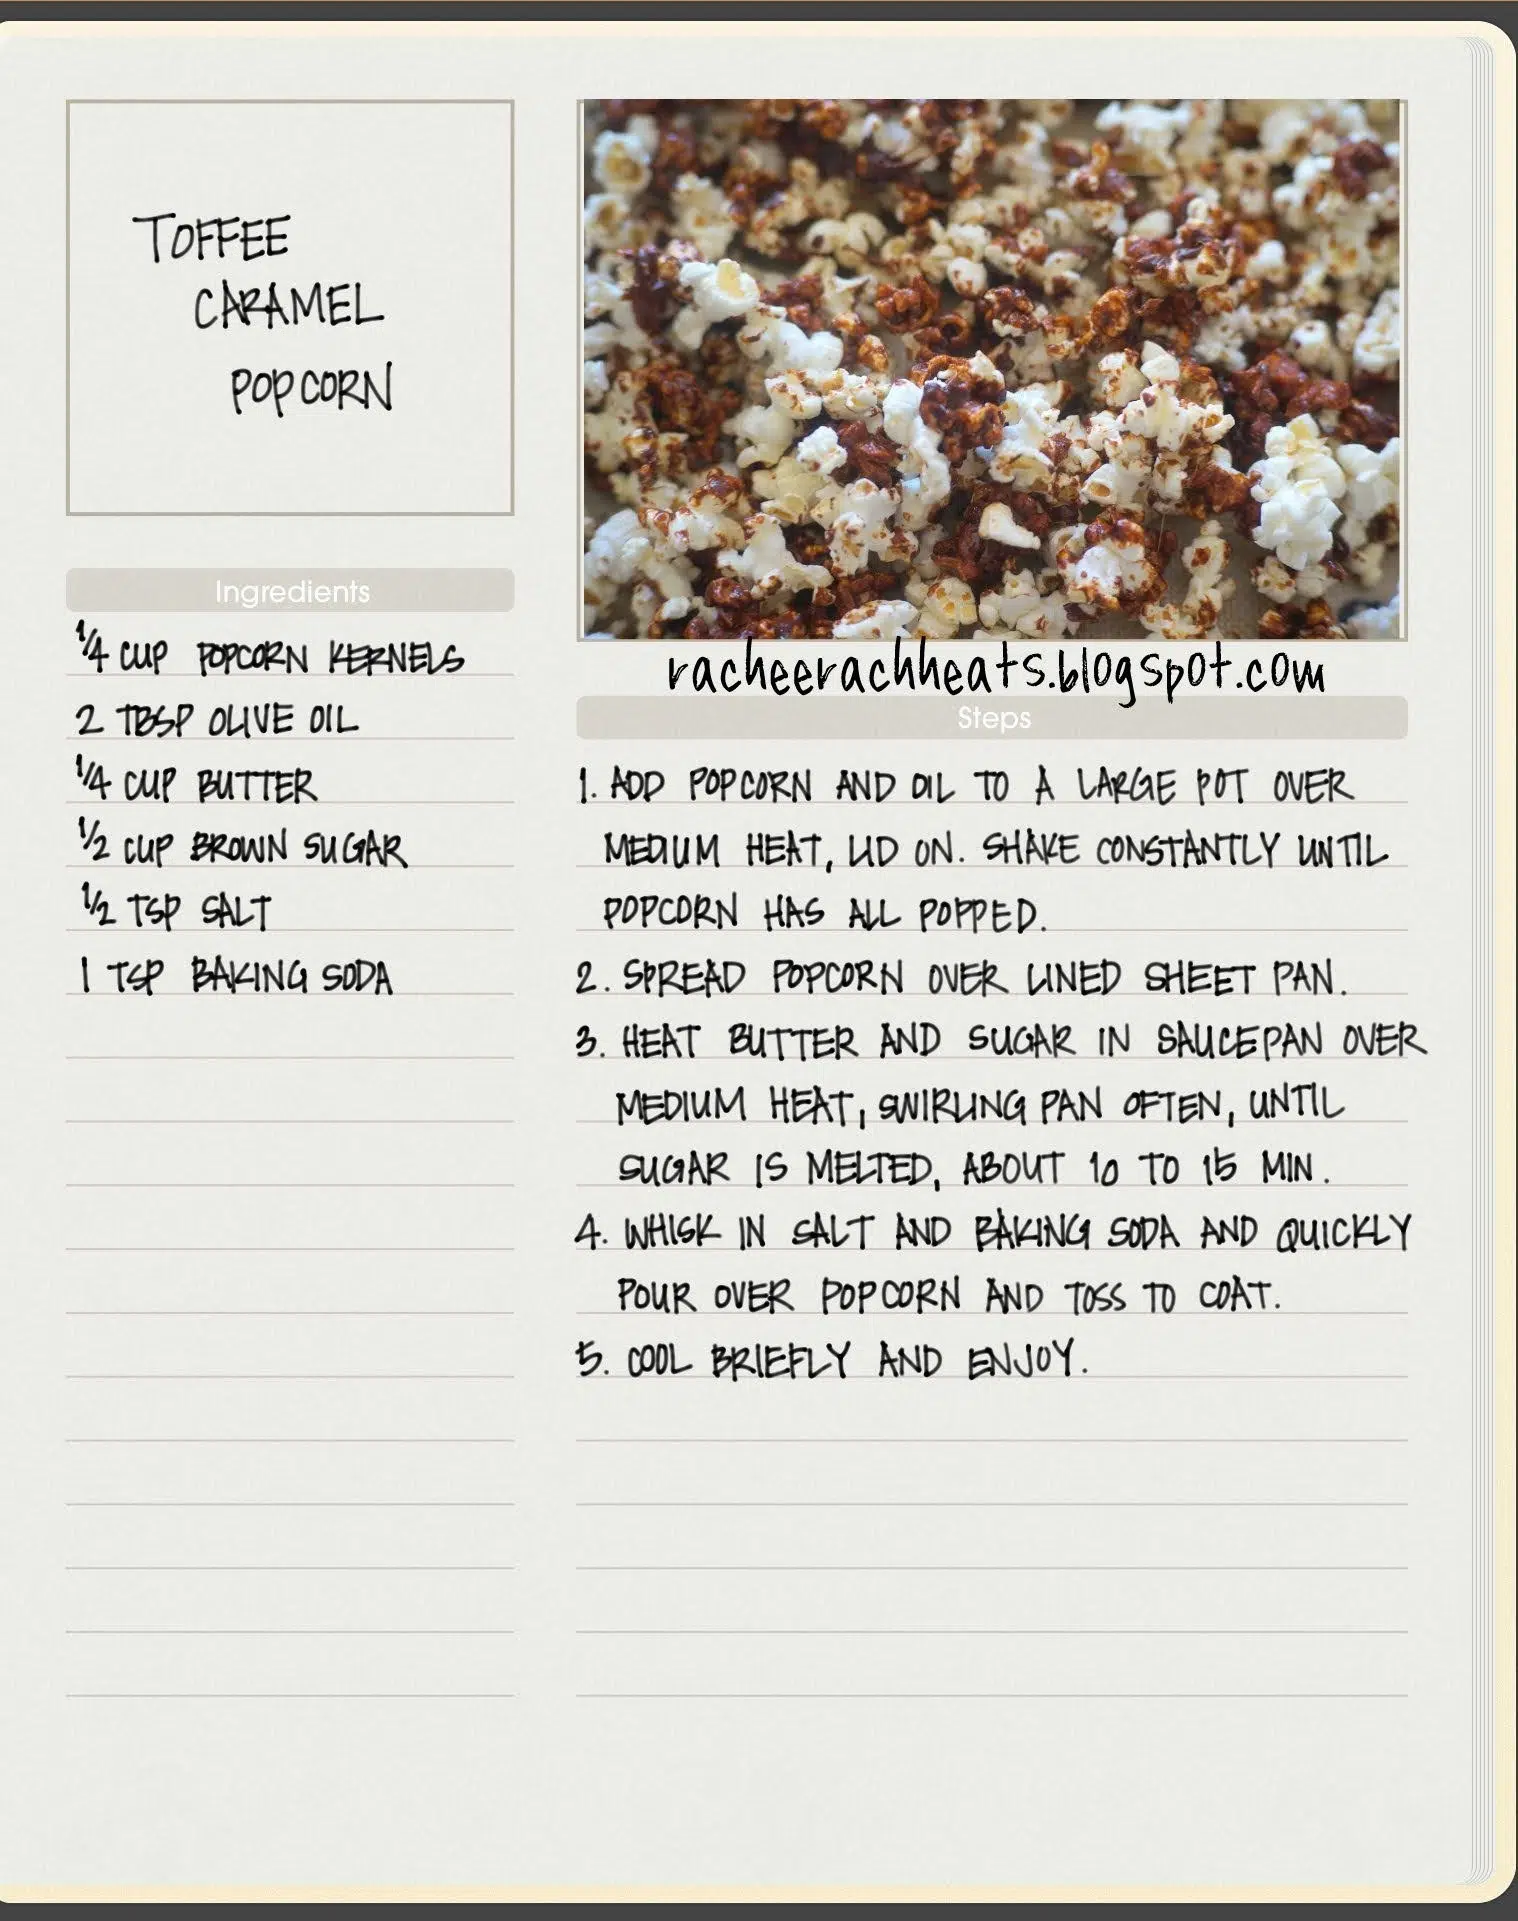 TOFFEE
CARAMEL
POPCORN
Ingredients
1/4 CUP POPCORN KERNELS
2 TBSP OLIVE OIL
1/4 CUP BUTTER
1/2 CUP BROWN SUGAR
1/2 TSP SALT
1 TSP BAKING SODA
racheerachheats.blogspot.com
Steps
1. ADD POPCORN AND OIL TO A LARGE POT OVER
MEDIUM HEAT, LID ON. SHAKE CONSTANTLY UNTIL
POPCORN HAS ALL POPPED.
2. SPREAD POPCORN OVER LINED SHEET PAN.
3. HEAT BUTTER AND SUGAR IN SAUCEPAN OVER
MEDIUM HEAT, SWIRLING PAN OFTEN, UNTIL
SUGAR IS MELTED, ABOUT 10 TO 15 MIN.
4. WHISK IN SALT AND BAKING SODA AND QUICKLY
POUR OVER POPCORN AND TOSS TO COAT.
5. COOL BRIEFLY AND ENJOY.